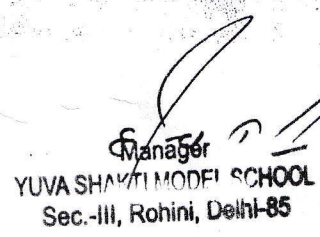 Manager
YUVA SHAKTI MODEL SCHOOL
Sec.-III, Rohini, Delhi-85